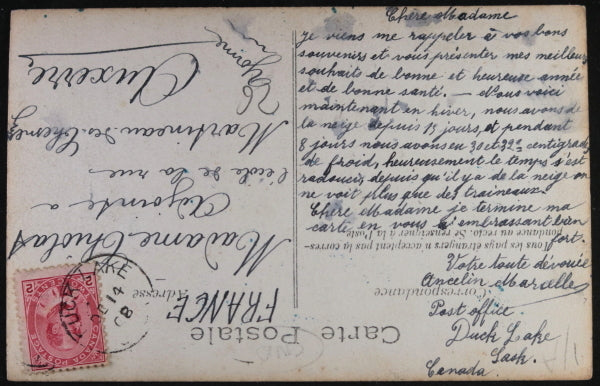 Chère Madame
je viens me rappeler à vos bons
souvenirs et vous présenter mes meilleurs
souhaits de bonne et heureuse année
et de bonne santé. — Nous voici
maintenant en hiver, nous avons de
la neige depuis 15 jours, et pendant
8 jours nous avons eu 30 et 32° centigrades
de froid, heureusement le temps s'est
radouci, depuis qu'il y a de la neige on
ne voit plus que des traineaux.
Chère Madame je termine ma
carte en vous embrassant bien
fort.
Votre toute dévouée
Ancelin Marcelle
Post office.
Duck Lake
Sask.
Canada.
Carte Postale
Correspondance
Tous les pays étrangers n'acceptent pas la corres-
pondance au recto. (Se renseigner à la Poste)
Adresse
FRANCE
Madame Cholas
Adjointe à
l'école de la rue
Martineau des Chesnez
Auxerre
Yonne
DUCK LAKE
DE 14
08
CANADA POSTAGE
2 CENTS 2